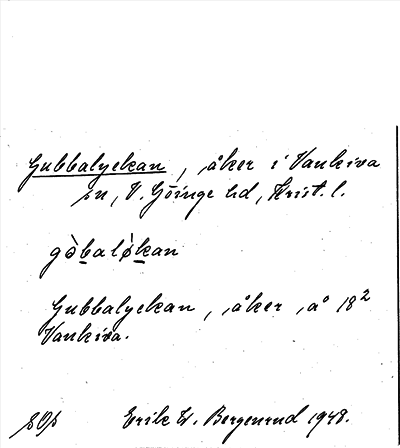 Gubbalyckan, åker i Vankiva
sn, V. Göinge hd, Krist. l.
gòbaløkan
Gubbalyckan, åker, å 18²
Vankiva.
Erik W. Bergenrud 1948.